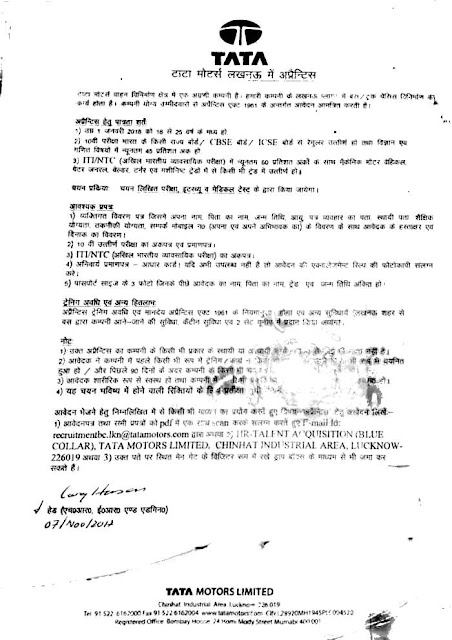 TATA
टाटा मोटर्स लखनऊ में अप्रैन्टिस
टाटा मोटर्स वाहन विनिर्माण क्षेत्र में एक अग्रणी कम्पनी है। हमारी कम्पनी के लखनऊ प्लान्ट में बस/ट्रक चेसिस विनिर्माण का
कार्य होता है। कम्पनी योग्य उम्मीदवारों से अप्रैन्टिस एक्ट 1961 के अन्तर्गत आवेदन आमन्त्रित करती है।
अप्रैन्टिस हेतु पात्रता शर्तें:
1) उम्र 1 जनवरी 2018 को 18 से 25 वर्ष के मध्य हो.
2) 10वीं परीक्षा भारत के किसी राज्य बोर्ड/ CBSE बोर्ड/ ICSE बोर्ड से रेगुलर उत्तीर्ण हो तथा विज्ञान एवं
गणित विषयों में न्यूनतम 45 प्रतिशत अंक हो
3) ITI/NTC (अखिल भारतीय व्यावसायिक परीक्षा) में न्यूनतम 60 प्रतिशत अंकों के साथ मैकेनिक मोटर व्हिकल,
पेंटर जनरल, वेल्डर, टर्नर एवं मशीनिष्ट ट्रेडों में से किसी भी ट्रेड में उत्तीर्ण हो।
चयन प्रक्रिया: चयन लिखित परीक्षा, इन्टरव्यू व मेडिकल टेस्ट के द्वारा किया जायेगा।
आवश्यक प्रपत्र:
1) व्यक्तिगत विवरण पत्र जिसमे अपना नाम, पिता का नाम, जन्म तिथि, आयु, पत्र व्यवहार का पता, स्थायी पता शैक्षिक
योग्यता, तकनीकी योग्यता, सम्पर्क मोबाइल न0 (अपना एवं अपने अभिभावक का) के विवरण के साथ आवेदक के हस्ताक्षर एवं
दिनांक का विवरण।
2) 10 वीं उत्तीर्ण परीक्षा का अंकपत्र एवं प्रमाणपत्र।
3) ITI/NTC (अखिल भारतीय व्यावसायिक परीक्षा) का अंकपत्र।
4) अनिवार्य प्रमाणपत्र – आधार कार्ड। यदि अभी उपलब्ध नहीं है तो आवेदन की एक्नालेजमेन्ट स्लिप की फोटोकापी संलग्न
करें।
5) पासपोर्ट साइज के 3 फोटो जिनके पीछे आवेदक का नाम, पिता का नाम, ट्रेड एवं जन्म तिथि अंकित हो।
ट्रेनिंग अवधि एवं अन्य हितलाभ:
अप्रैन्टिस ट्रेनिंग अवधि एवं मानदेय अप्रैन्टिस एक्ट 1961 के नियमानुसार होगा एवं अन्य सुविधायें लखनऊ शहर से
बस द्वारा कम्पनी आने-जाने की सुविधा, कैंटीन सुविधा एवं 2 सेट यूनीफार्म प्रदान किया जायेगा।
नोट:
1) उक्त अप्रैन्टिस का कम्पनी के किसी भी प्रकार के स्थायी या अस्थायी नहीं है।
2) आवेदक ने कम्पनी में पहले किसी भी रूप में ट्रेनिंग/कार्य न किया
हुआ हो / और पिछले 90 दिनों के अंदर कम्पनी के किसी भी
3) आवेदक शारीरिक रूप से स्वस्थ हो तथा कम्पनी में
4) यह चयन भविष्य में होने वाली रिक्तियों के लिये प्रतीक्षा
आवेदन भेजने हेतु निम्नलिखित में से किसी भी माध्यम का प्रयोग करते हुए अप्रैन्टिस हेतु आवेदन लिखें:-
1) आवेदनपत्र तथा सभी प्रपत्रों को pdf में एक साथ scan करके संलग्न करते हुए E-mail Id:
recruitmentbc.lkn@tatamotors.com द्वारा अथवा 2) HR-TALENT ACQUISITION (BLUE
COLLAR), TATA MOTORS LIMITED, CHINHAT INDUSTRIAL AREA, LUCKNOW-
226019 अथवा 3) उक्त पते पर स्थित मेन गेट के विजिटर रूम में रखे ड्राप बॉक्स के माध्यम से भी जमा कर
सकते है।
हेड (एच0आर0, ई0आर0 एण्ड एडमिन0)
07/Nov/2017
TATA MOTORS LIMITED
Chinhat Industrial Area Lucknow 226 019
Tel 91 522 6162000 Fax 91 522 6162064 www.tatamotors.com CIN L28920MH1945PLC004520
Registered Office Bombay House 24 Homi Mody Street Mumbai 400 001